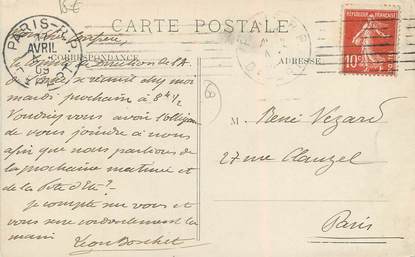 8€
CARTE POSTALE
PARIS
AVRIL
09
CORRESPONDANCE
ADRESSE
REPUBLIQUE FRANÇAISE
10
se réunit chez moi
mardi prochain à 8h 1/2
Voudriez vous avoir l'obligeance
de vous joindre à nous
afin que nous parlions de
la prochaine matinée et
de la fête d'Eté?
je compte sur vous et
vous serre cordialement la
main
Léon Boschet
M. René Vézard
27 rue Clauzel
Paris